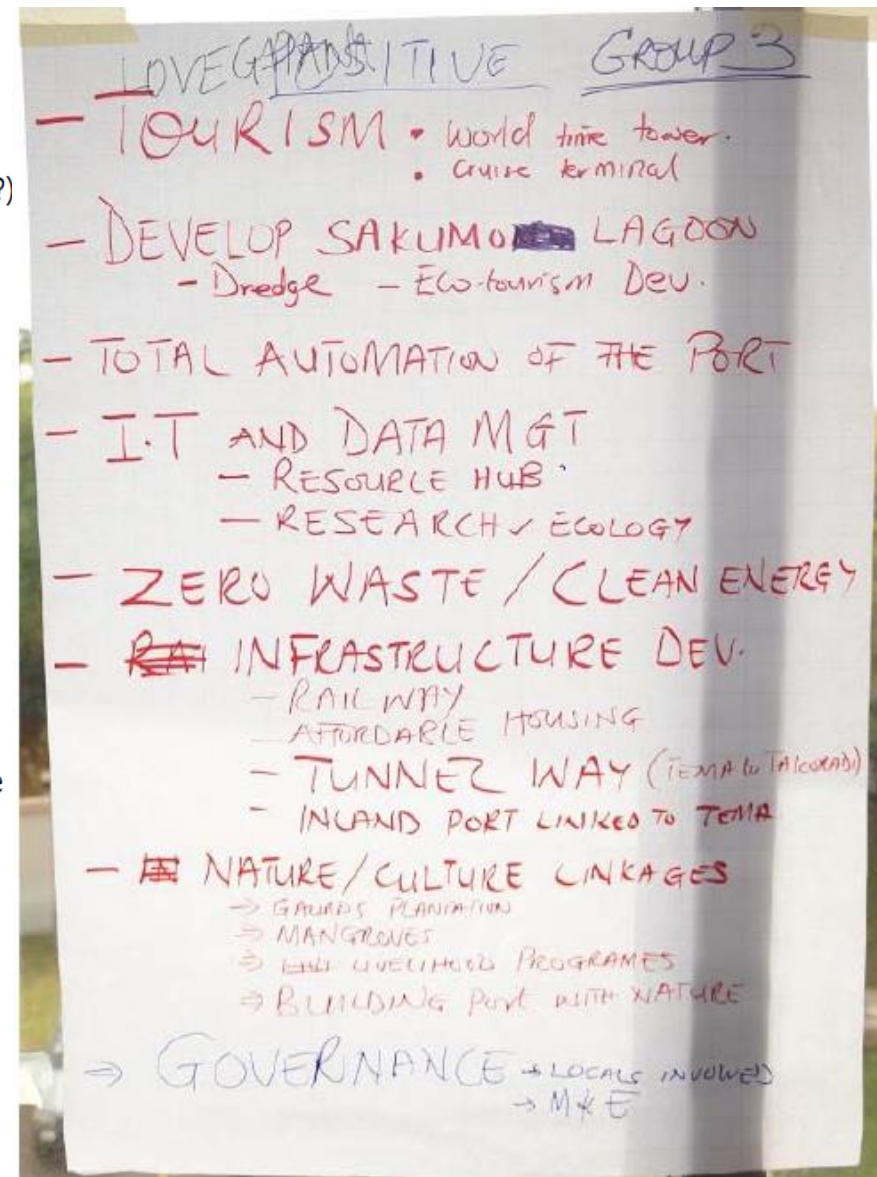 POSITIVE GROUP 3
- TOURISM • World time tower.
• Cruise terminal
- DEVELOP SAKUMO LAGOON
- Dredge - Eco-tourism Dev.
- TOTAL AUTOMATION OF THE PORT
- I.T AND DATA MGT
- RESOURCE HUB
- RESEARCH ECOLOGY
- ZERO WASTE / CLEAN ENERGY
- INFRASTRUCTURE DEV.
- RAILWAY
- AFFORDABLE HOUSING
- TUNNEL WAY (TEMA to TAKORADI)
- INLAND PORT LINKED TO TEMA
- NATURE/CULTURE LINKAGES
⇒ PLANTATION
⇒ MANGROVES
⇒ LIVELIHOOD PROGRAMES
⇒ BUILDING Port WITH NATURE
⇒ GOVERNANCE → LOCALS INVOLVED
→ M & E